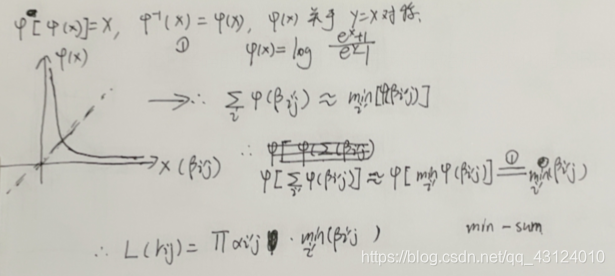 φ[φ(x)]=x, φ⁻¹(x) = φ(x), φ(x) 关于 y=x 对称.
①
φ(x)= log (eˣ+1)/(eˣ-1)
φ(x)
→ ∴ Σᵢ′ φ(βi'j) ≈ min i' [φ(βi'j)]
x (βi'j)
∴ φ[Σᵢ′ φ(βi'j)] ≈ φ[min i' φ(βi'j)] ①= min i' (βi'j)
∴ L(rij) = Π αi'j · min i' (βi'j)
min-sum
https://blog.csdn.net/qq_43124010